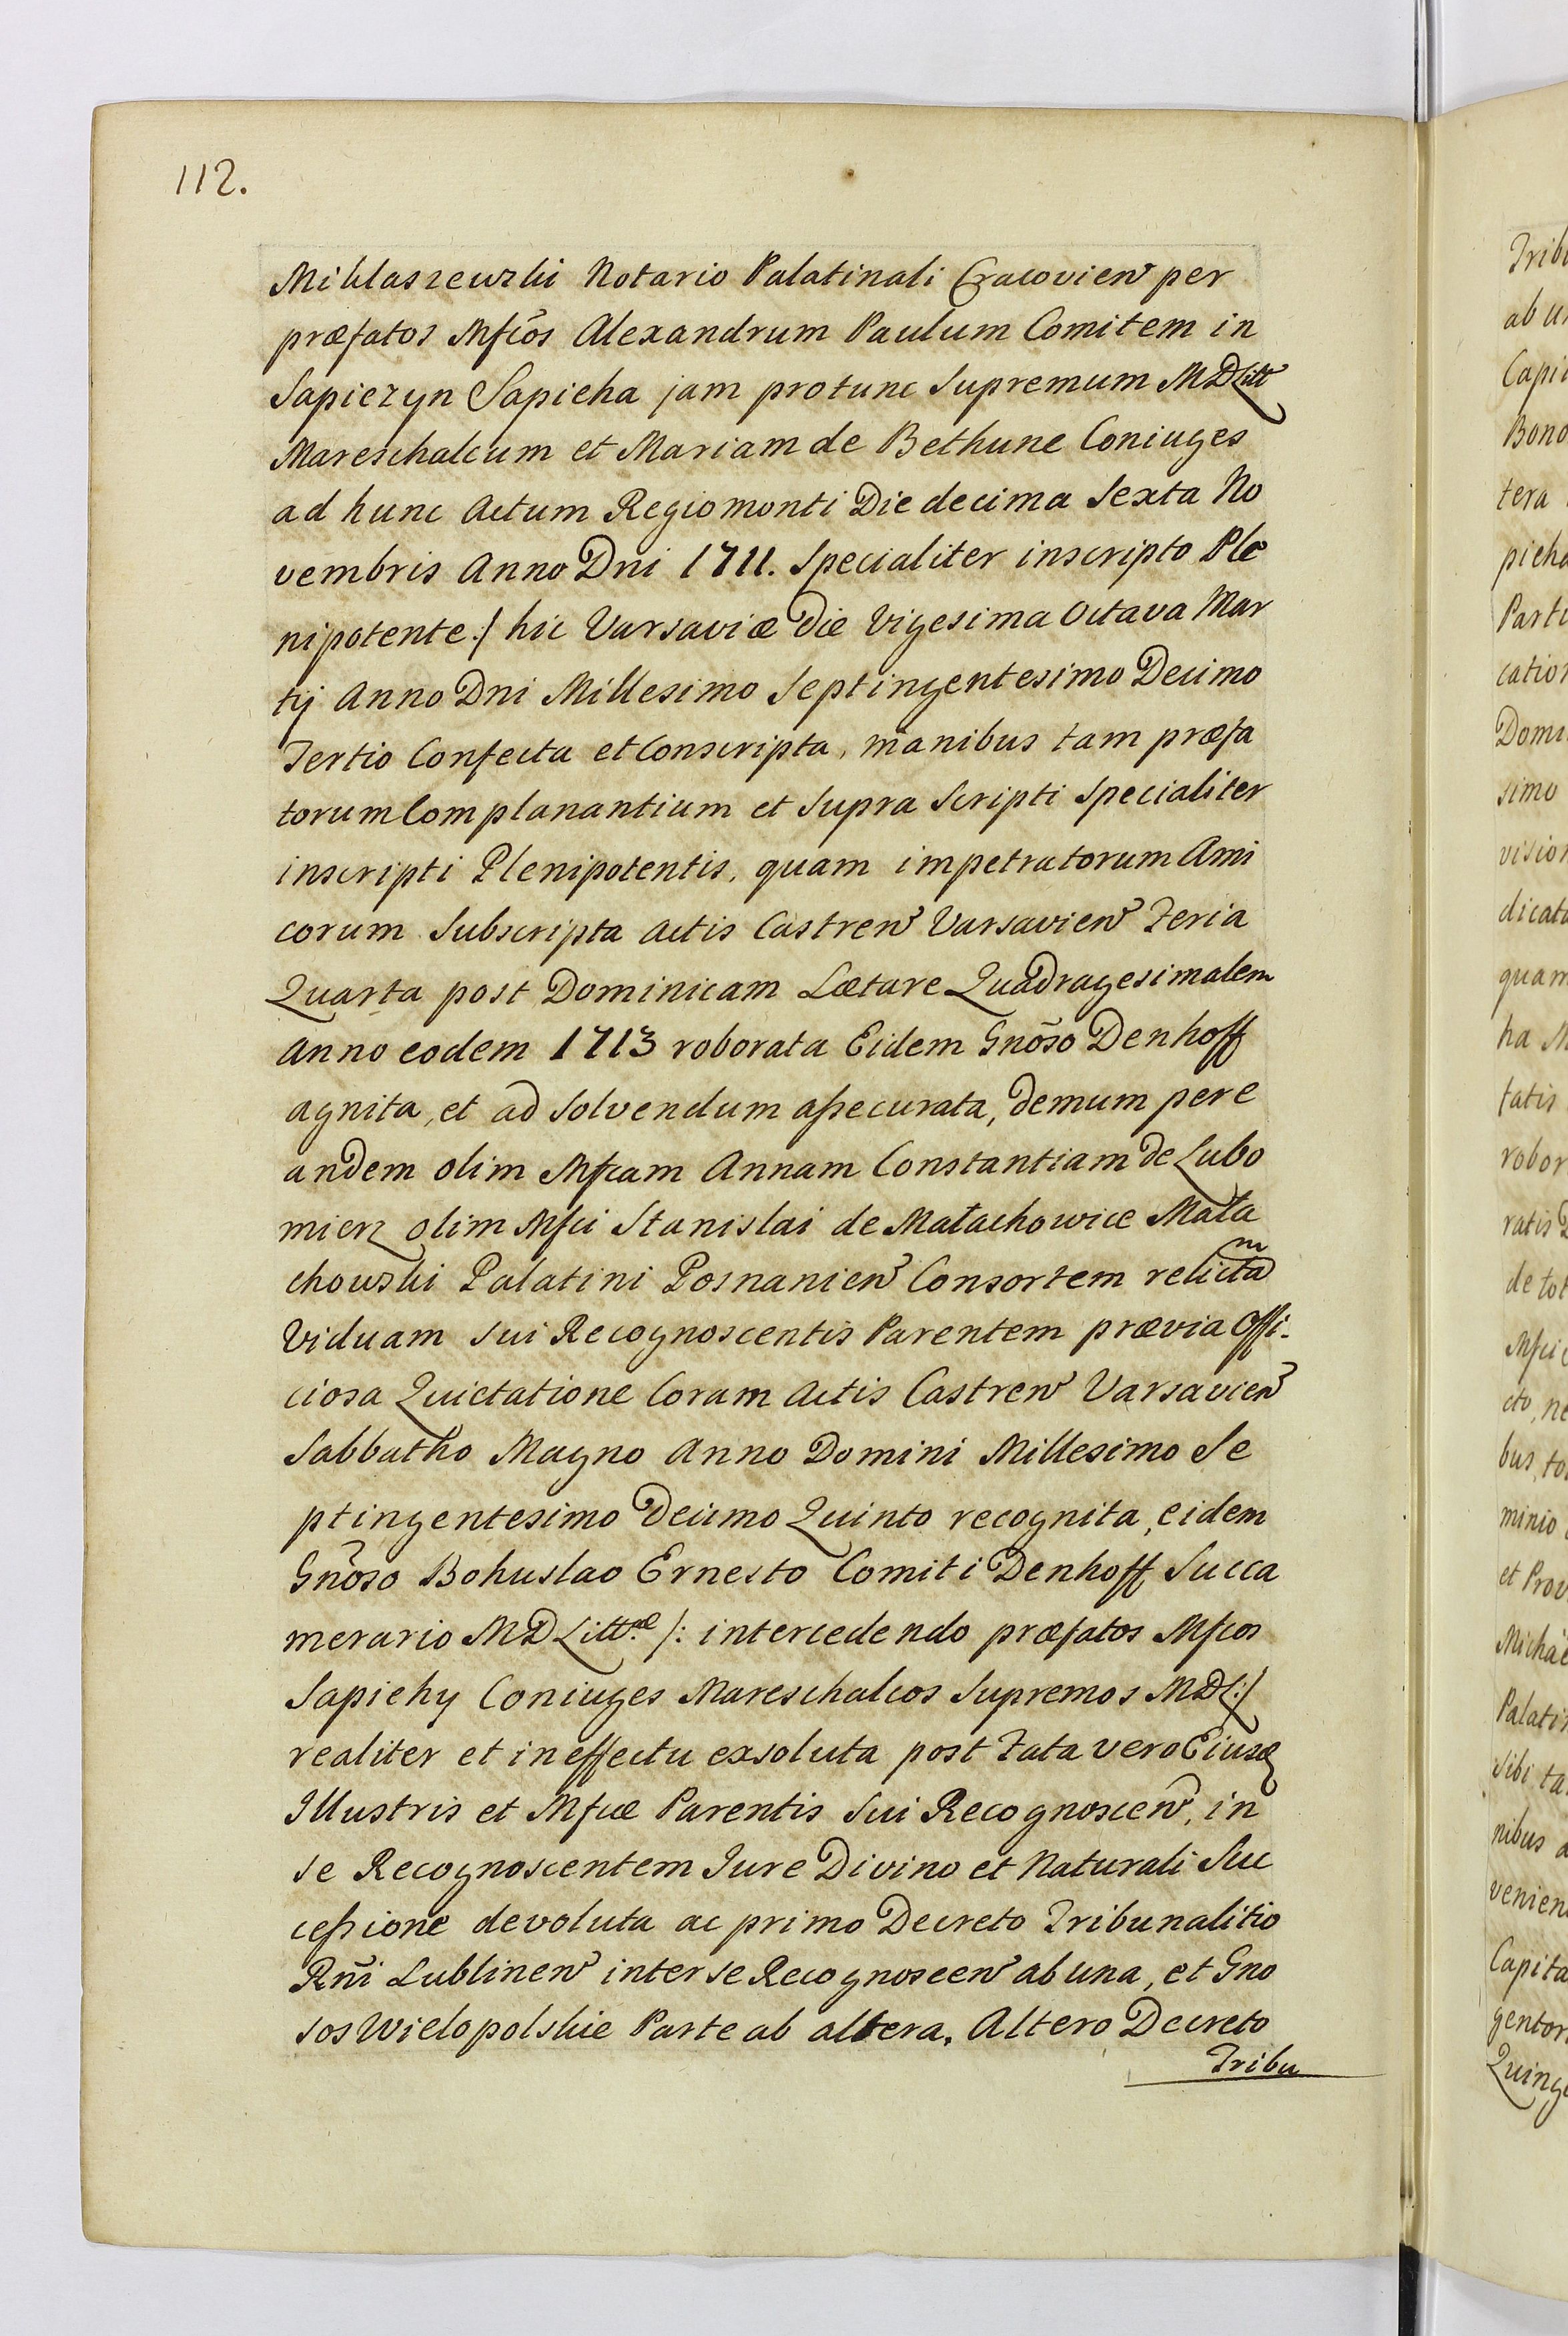 112.
Miklaszewski Notario Palatinali Cracovien per
præfatos Mfcõs Alexandrum Paulum Comitem in
Sapiezyn Sapieha jam protunc Supremum MDLitt
Mareschalcum et Mariam de Bethune Coniuges
ad hunc Actum Regiomonti Die decima Sexta No
vembris Anno Dni 1711. Specialiter inscripto Ple
nipotente:/ hic Varsaviæ Die Vigesima Octava Mar
tij Anno Dni Millesimo Septingentesimo Decimo
Tertio Confecta et Conscripta, manibus tam præfa
torum Complanantium et Supra Scripti Specialiter
inscripti Plenipotentis, quam impetratorum Ami
corum Subscripta Actis Castren Varsavien Feria
Quarta post Dominicam Lætare Quadragesimalem
Anno eodem 1713 roborata Eidem Gnõso Denhoff
agnita, et ad Solvendum aſsecurata, demum per e
andem olim Mfcam Annam Constantiam de Lubo
mierz olim Mfci Stanislai de Małachowice Mała
chowski Palatini Posnanien Consortem relictam
Viduam sui Recognoscentis Parentem prævia Offi-
ciosa Quietatione Coram Actis Castren Varsavien
Sabbatho Magno Anno Domini Millesimo Se
ptingentesimo Decimo Quinto recognita, eidem
Gnõso Bohuslao Ernesto Comiti Denhoff Succa
merario MD Litt:æ /: intercedendo præfatos Mfcos
Sapiehy Coniuges Mareschalcos Supremos MDL:/
realiter et in effectu exsoluta post Fata vero Eiusq
Illustris et Mfcæ Parentis Sui Recognoscen, in
se Recognoscentem Jure Divino et Naturali Suc
ceſsione devoluta ac primo Decreto Tribunalitio
Rñi Lublinen inter se Recognoscen ab una, et Gno
sos Wielopolskie Parte ab altera. Altero Decreto
Tribu
Tribu
ab u
Capi
Bono
tera
picha
Parti
cation
Domi
simo
vision
dicat
quam
ha M
fatis
robor
ratis
de tot
Mfci
cto, ne
bus, to
minio
et Prov
Michae
Palati
sibi ta
nibus a
venien
Capita
gentor
Quinge